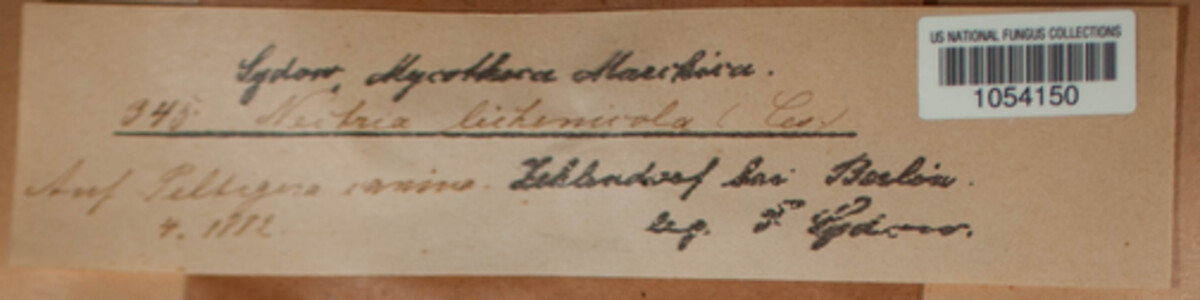 US NATIONAL FUNGUS COLLECTIONS
1054150
Sydow, Mycotheca Marchica.
345. Nectria lichenicola (Ces.)
Auf Peltigera canina. Zehlendorf bei Berlin.
4. 1882. leg. P. Sydow.